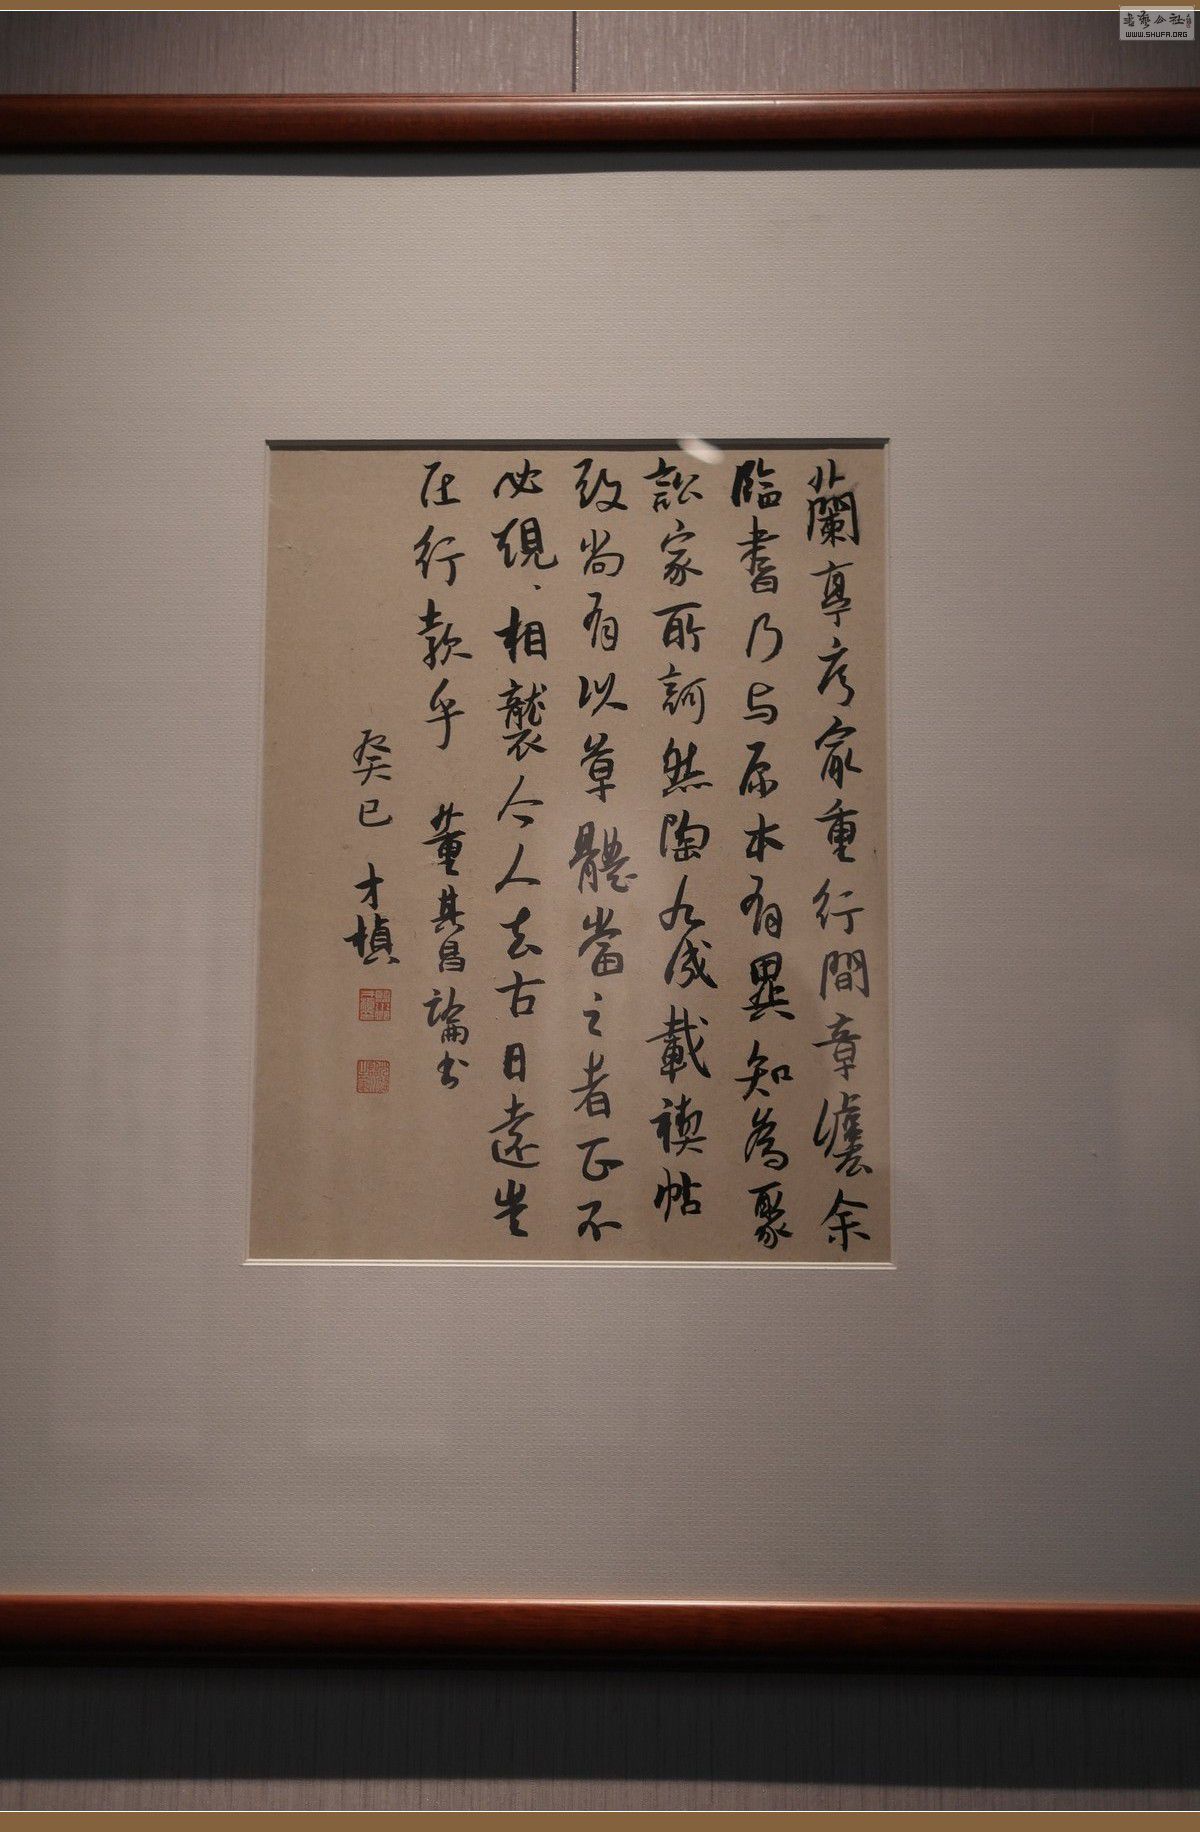 蘭亭序最重行間章法余
臨書乃与原本有異知為聚
訟家所訶然陶九成載禊帖
攷尚有以草體當之者正不
必規、相襲今人去古日遠豈
在行款乎 董其昌論書
癸巳 才楨
書藝公社
WWW.SHUFA.ORG